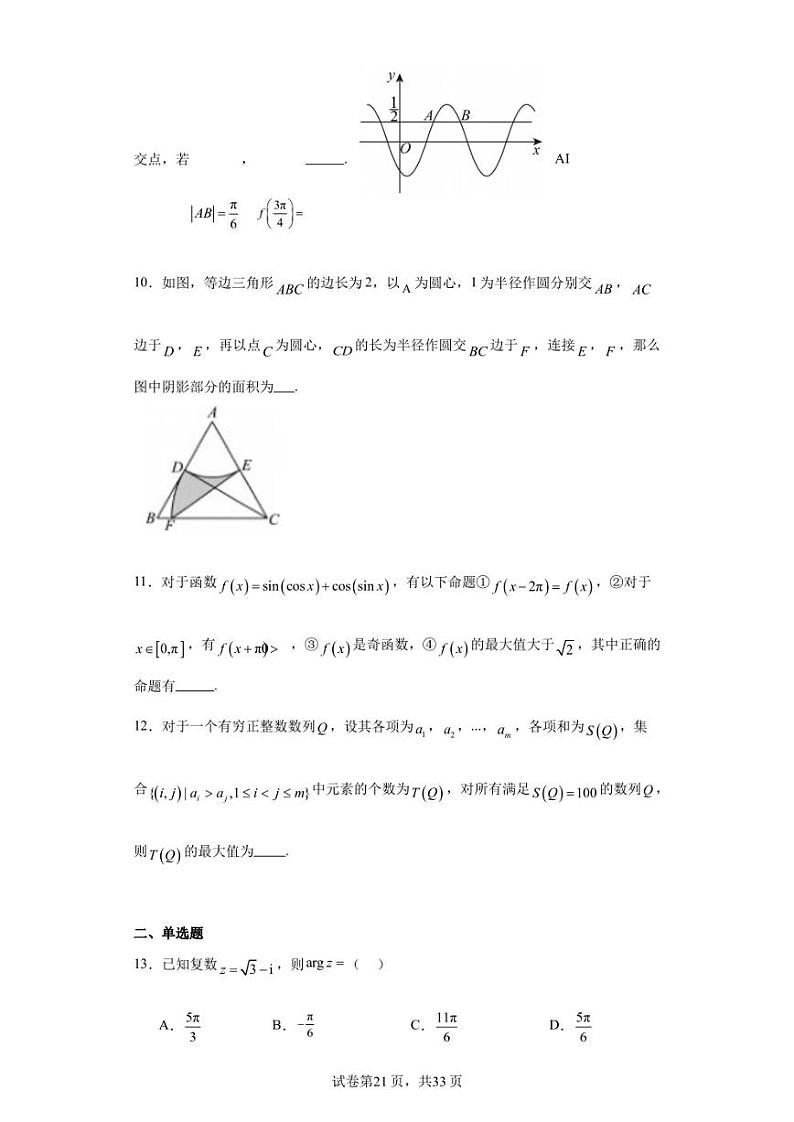 y
1/2
A
B
O
x
交点，若 ， ______. AI
|AB|=π/6 f(3π/4)=
10．如图，等边三角形ABC的边长为2，以A为圆心，1为半径作圆分别交AB，AC
边于D，E，再以点C为圆心，CD的长为半径作圆交BC边于F，连接E，F，那么
图中阴影部分的面积为___.
A
D
E
B
F
C
11．对于函数f(x)=sin(cosx)+cos(sinx)，有以下命题①f(x−2π)=f(x)，②对于
x∈[0,π]，有f(x+π)>0，③f(x)是奇函数，④f(x)的最大值大于√2，其中正确的
命题有______.
12．对于一个有穷正整数数列Q，设其各项为a₁，a₂，…，aₘ，各项和为S(Q)，集
合{(i,j)|aᵢ>aⱼ,1≤i<j≤m}中元素的个数为T(Q)，对所有满足S(Q)=100的数列Q，
则T(Q)的最大值为_____.
二、单选题
13．已知复数z=√3−i，则arg z=（ ）
A．5π/3 B．−π/6 C．11π/6 D．5π/6
试卷第21页，共33页